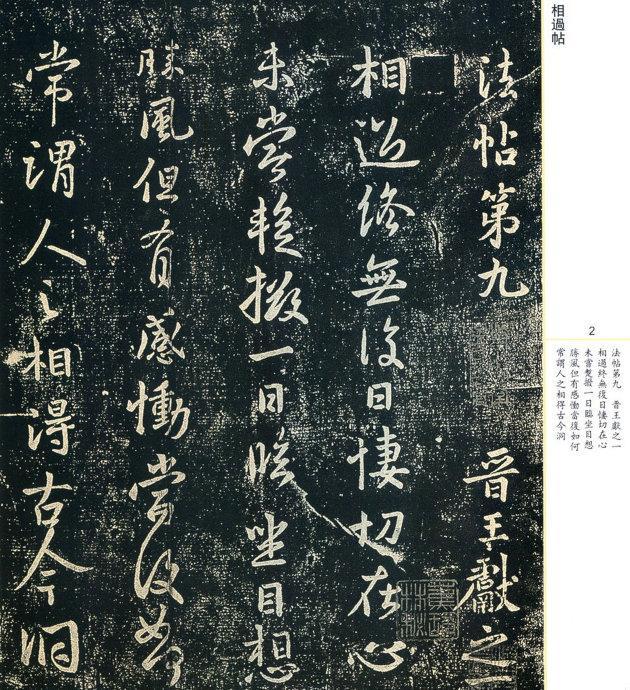 相過帖
法帖第九 晉王獻之一
相過終無復日悽切在心
未嘗蹔掇一日臨坐目想
勝風但有感慟當復如何
常謂人之相得古今洞
2
法帖第九 晉王獻之一
相過終無復日悽切在心
未嘗蹔掇一日臨坐目想
勝風但有感慟當復如何
常謂人之相得古今洞